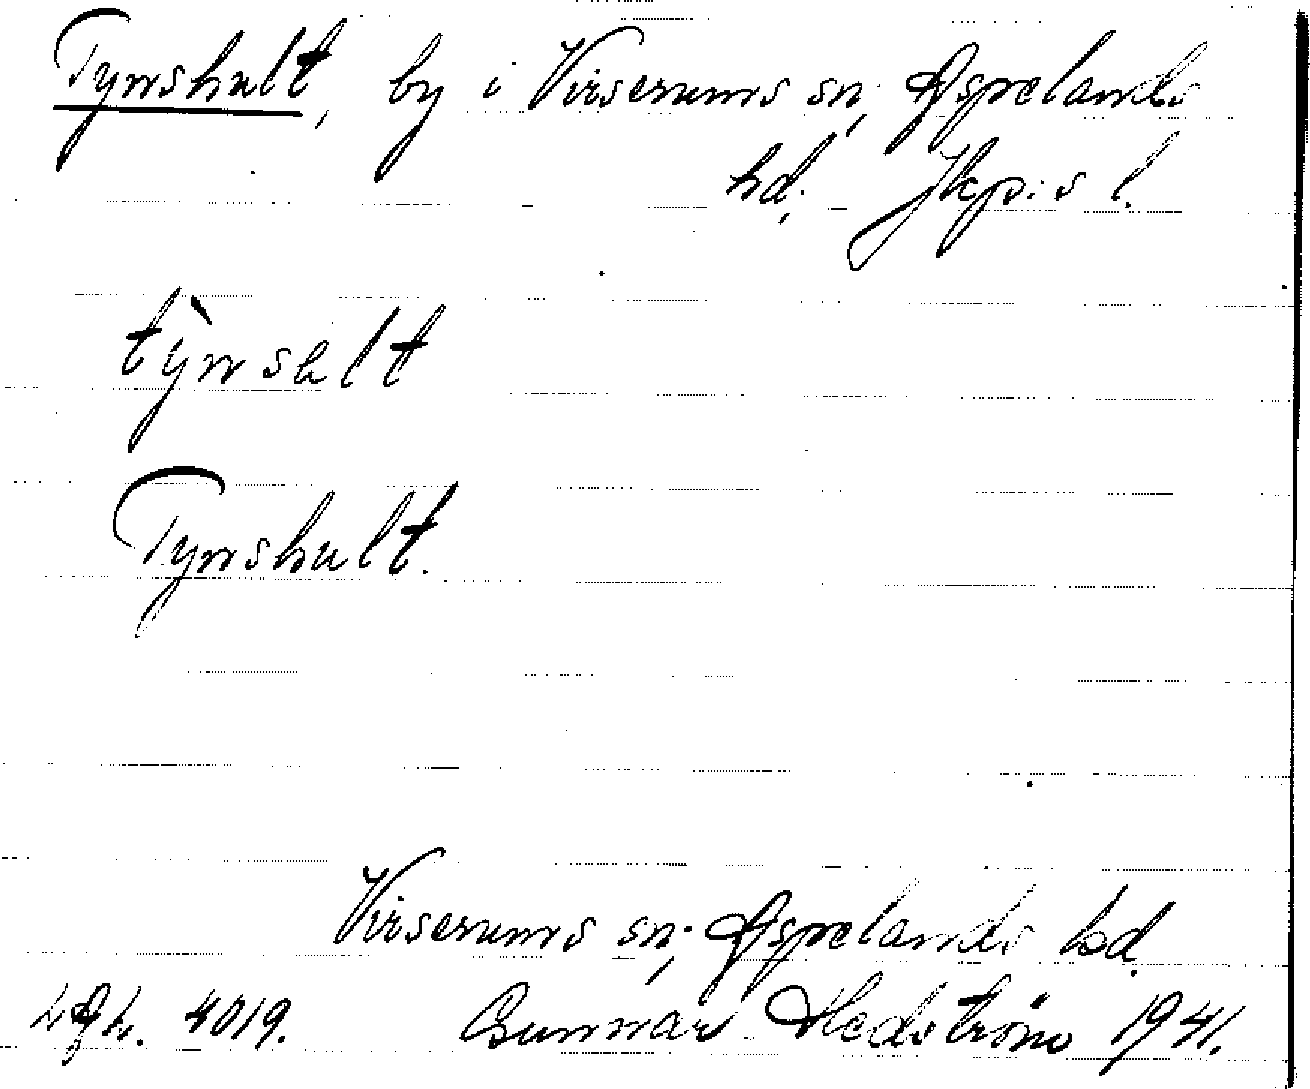 Tynshult, by i Virserums sn, Aspelands
hd, Jkp:s l.
tỳnsult
Tynshult.
Virserums sn, Aspelands hd.
4019. Gunnar Hedström 1941.